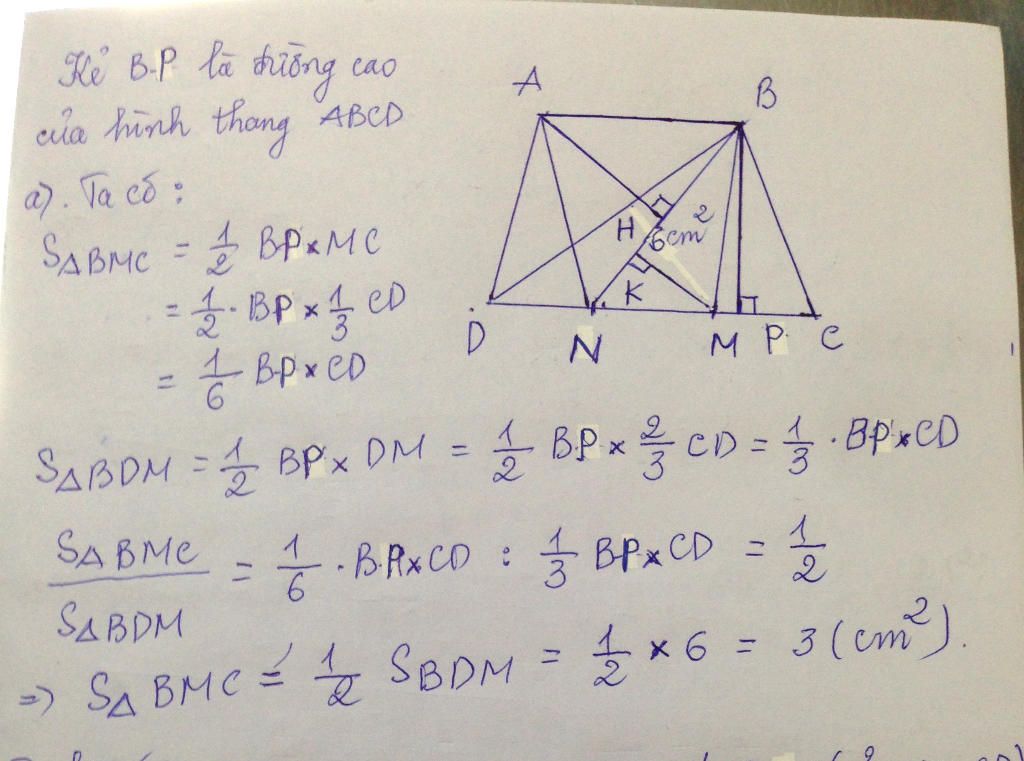 Kẻ BP là đường cao
của hình thang ABCD
a). Ta có :
S△BMC = 1/2 BP×MC
= 1/2 · BP × 1/3 CD
= 1/6 BP × CD
A
B
H
6cm²
K
D
N
M
P
C
S△BDM = 1/2 BP × DM = 1/2 BP × 2/3 CD = 1/3 · BP×CD
S△BMC/S△BDM = 1/6 · BP×CD : 1/3 BP×CD = 1/2
=> S△BMC = 1/2 SBDM = 1/2 × 6 = 3 (cm²).